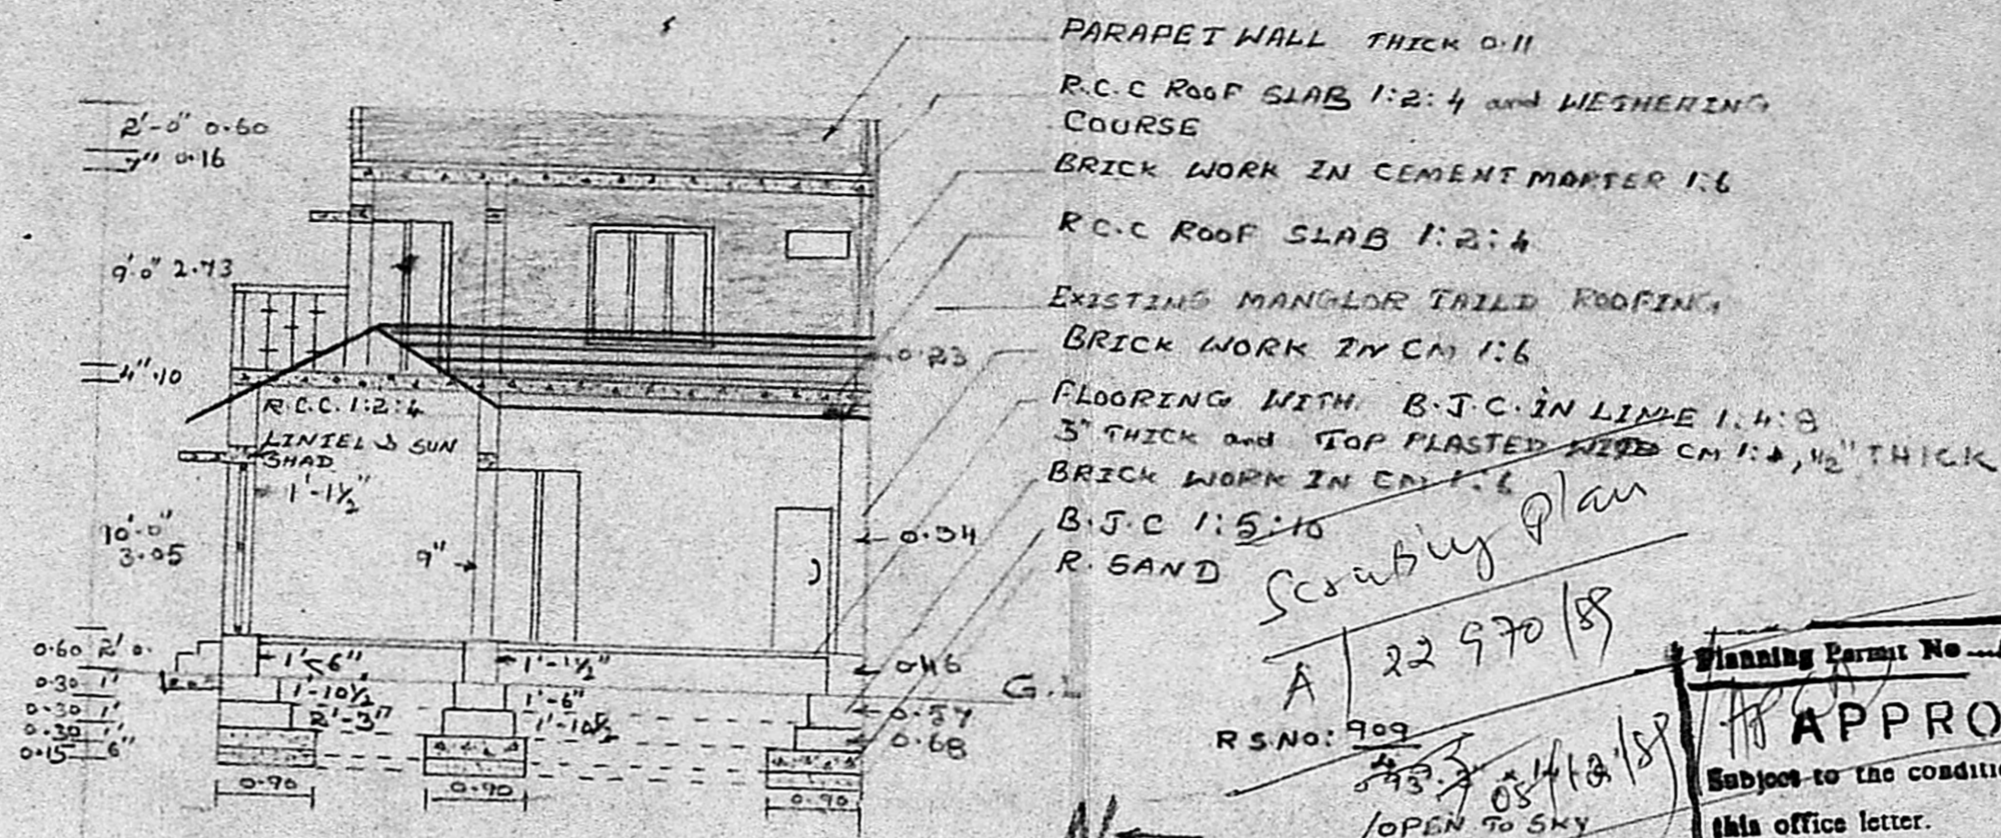 PARAPET WALL THICK 0.11
R.C.C ROOF SLAB 1:2:4 and WETHERING
COURSE
BRICK WORK IN CEMENT MORTER 1:6
R.C.C ROOF SLAB 1:2:4
EXISTING MANGLOR TAILD ROOFING
BRICK WORK IN CM 1:6
FLOORING WITH B.J.C. IN LIME 1:4:8
3" THICK and TOP PLASTED CM 1:4, ½" THICK
BRICK WORK IN CM 1:6
B.J.C 1:5:10
R. SAND
2'-0" 0.60
7" 0.16
9'0" 2.73
4" .10
10'-0"
3.05
0.60 2'0.
0.30 1'
0.30 1'
0.30 1'
0.15 6"
R.C.C. 1:2:4
LINTEL & SUN
SHAD
1'-1½"
9"
0.23
0.34
0.46
0.57
0.68
G.L
1'-6"
1'-10½
2'-3"
1'-1½"
1'-6"
1'-10½
0.90
0.90
0.90
Plan
A 22970/89
R.S.NO: 909
/12/89
/OPEN TO SKY
N
Planning Permit No
APPRO
Subject to the conditi
this office letter.